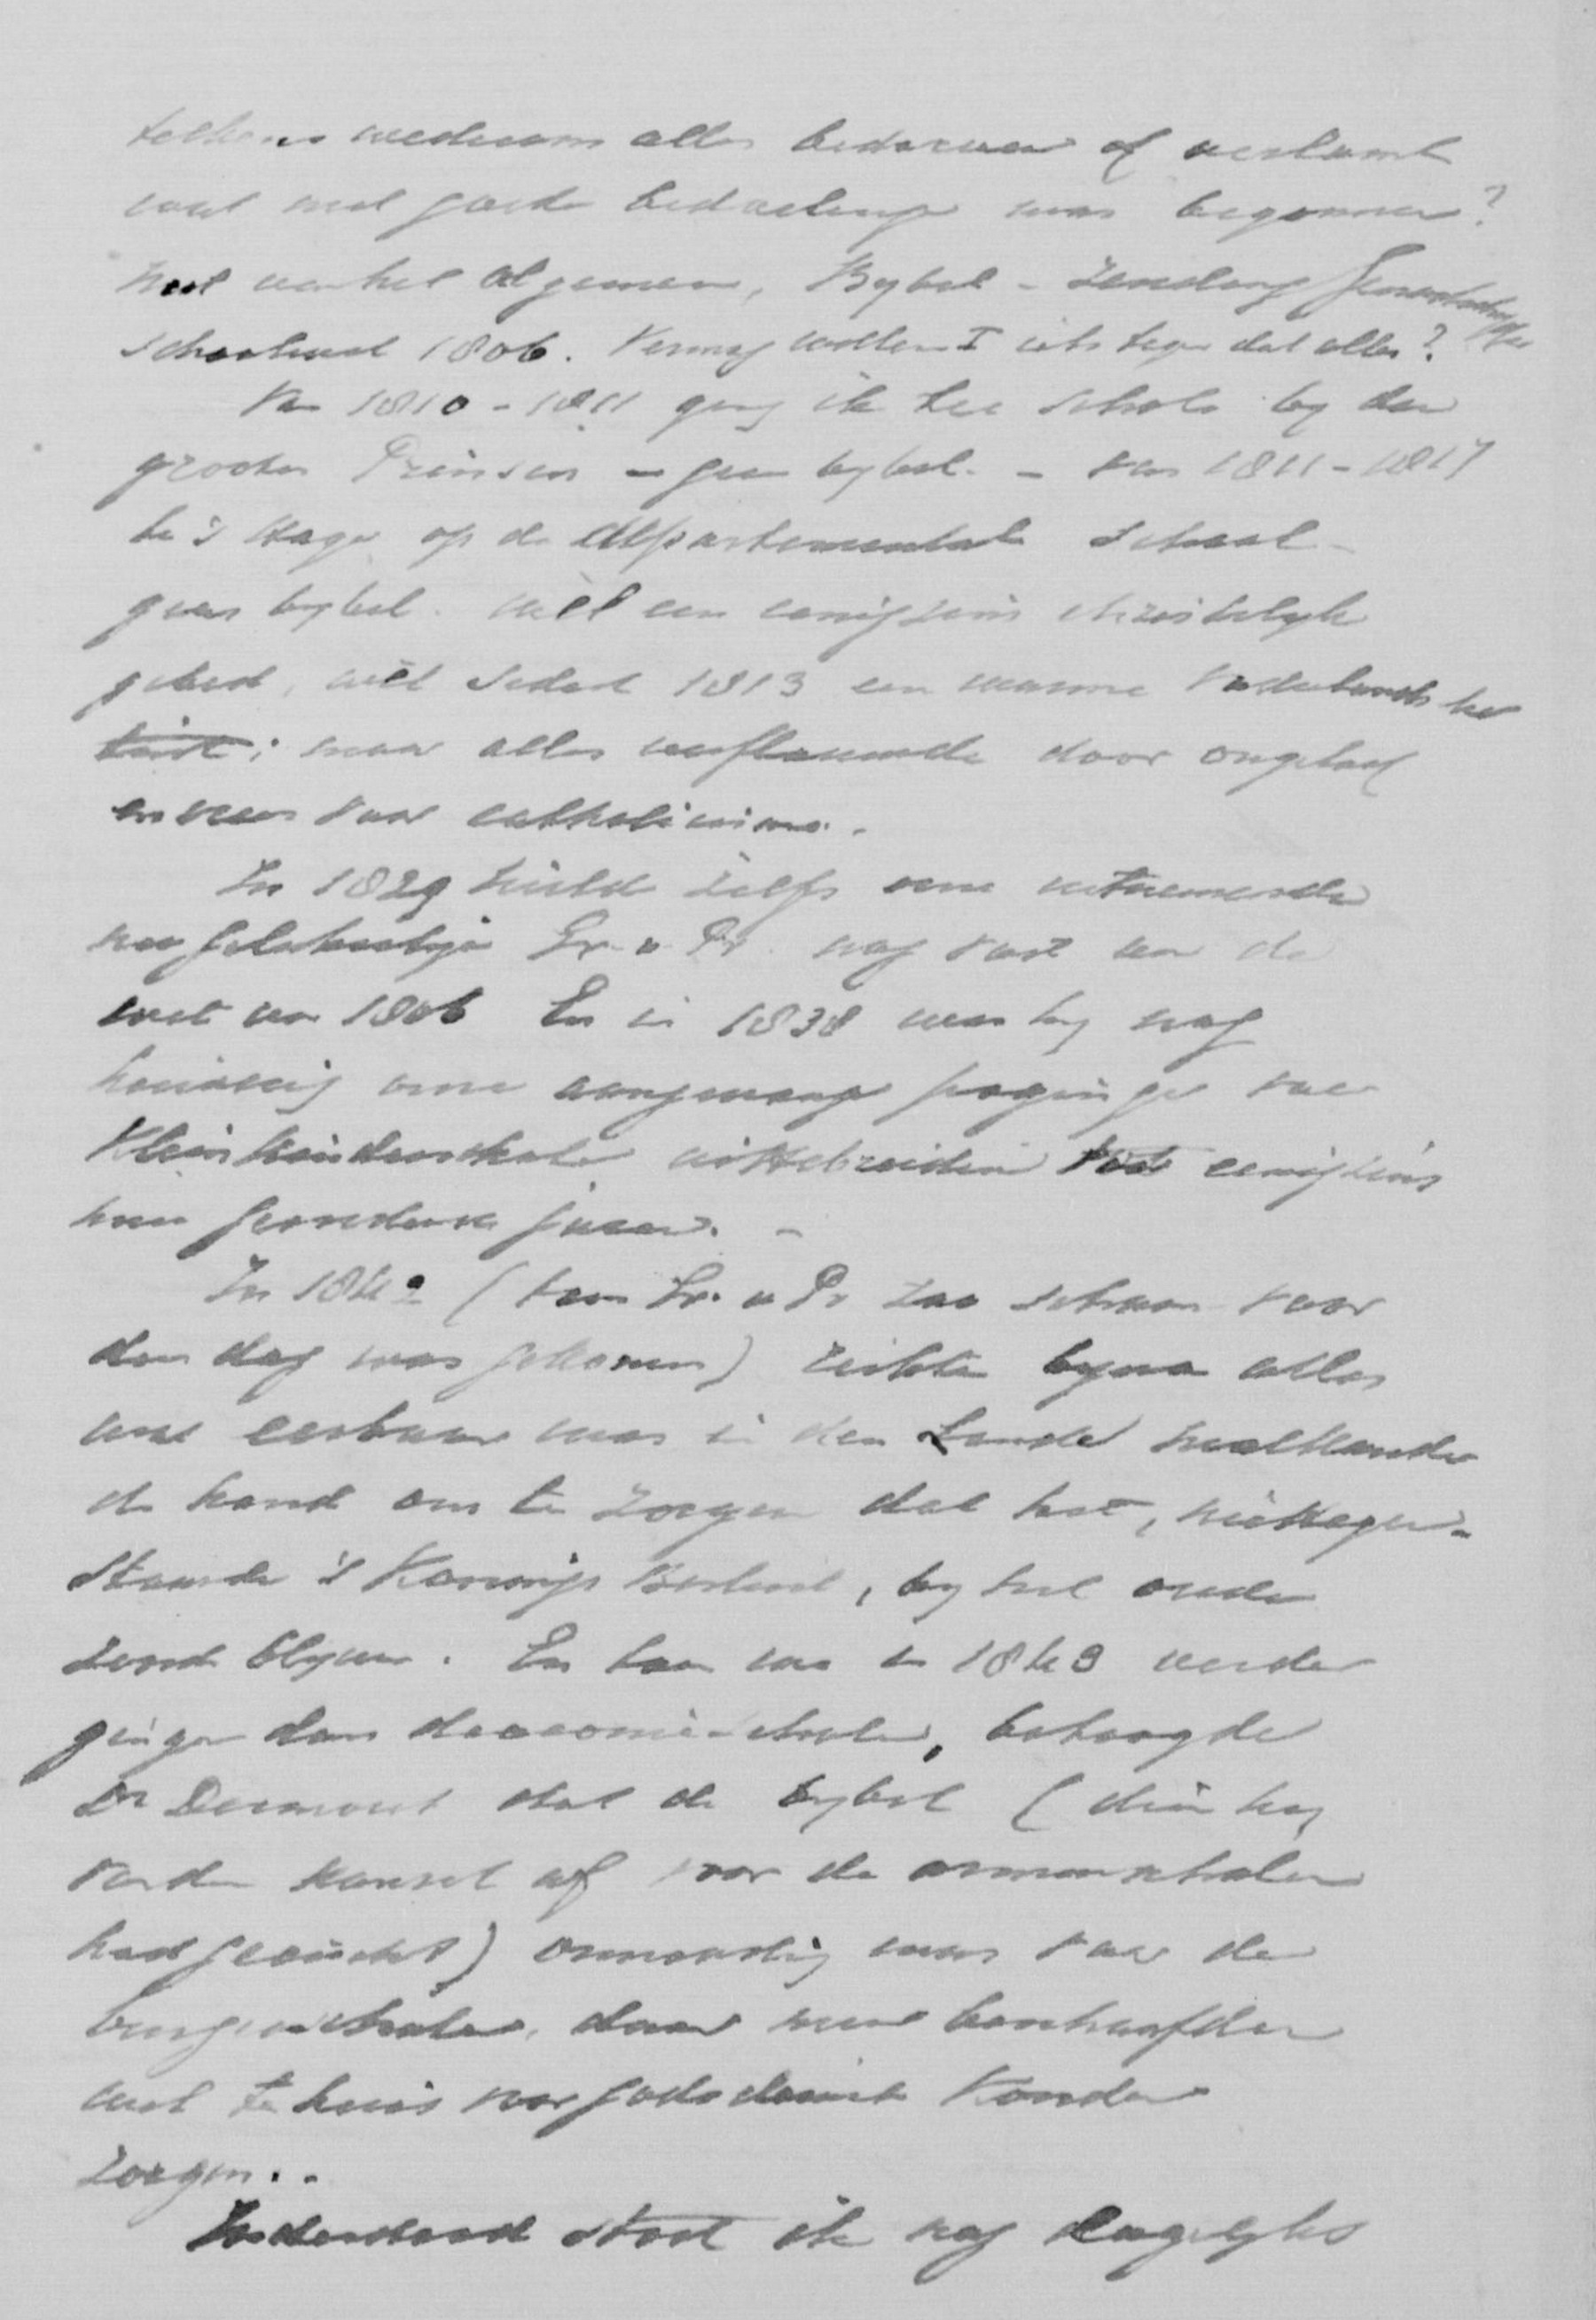 telkens wederom alles bedorven of verlamt
wat met goede bedoelingen was begonnen?
Met van het algemeen, Bybel - Zendeling Genootschap
schoolwet 1806. Vermag Willem I iets tegen dat alles?
Van 1810 - 1811 ging ik ter schole by den
grooten Prinsen - geen bybel. - Van 1811 - 1817
te 's Hage op de departementale school -
geen bybel. wèl een eenigzins christelyk
gebed, wèl sedert 1813 een warme vaderlandsche
; maar alles verflauwde door ongeloof
en vrees voor catholicisme.
In 1829 hield zelfs onze uitnemende
Gr. v. Pr. nog vast aan de
wet van 1806 En in 1838 was hy nog
om aangevangen pogingen voor
Kleinkinderscholen uittebreiden tot eenigzins
meer gevorderde jaren. -
In 1840 (toen Gr. v Pr zoo schoon voor
den dag was gekomen) reikte byna alles
wat eerbaar was in den Lande malkander
de hand om te zorgen dat het, niettegen-
staande 's Konings Besluit, by het oude
zoude blyven. En toen we in 1843 verder
gingen dan diaconie-scholen, betoogde
Dr Dermout dat de bybel (dien hy
van den kansel af voor de armenscholen
had geëischt) onnoodig was voor de
burgerscholen, daar meer beschaafden
wel te huis voor godsdienst konden
zorgen. .
Inderdaad stoot ik nog dagelyks